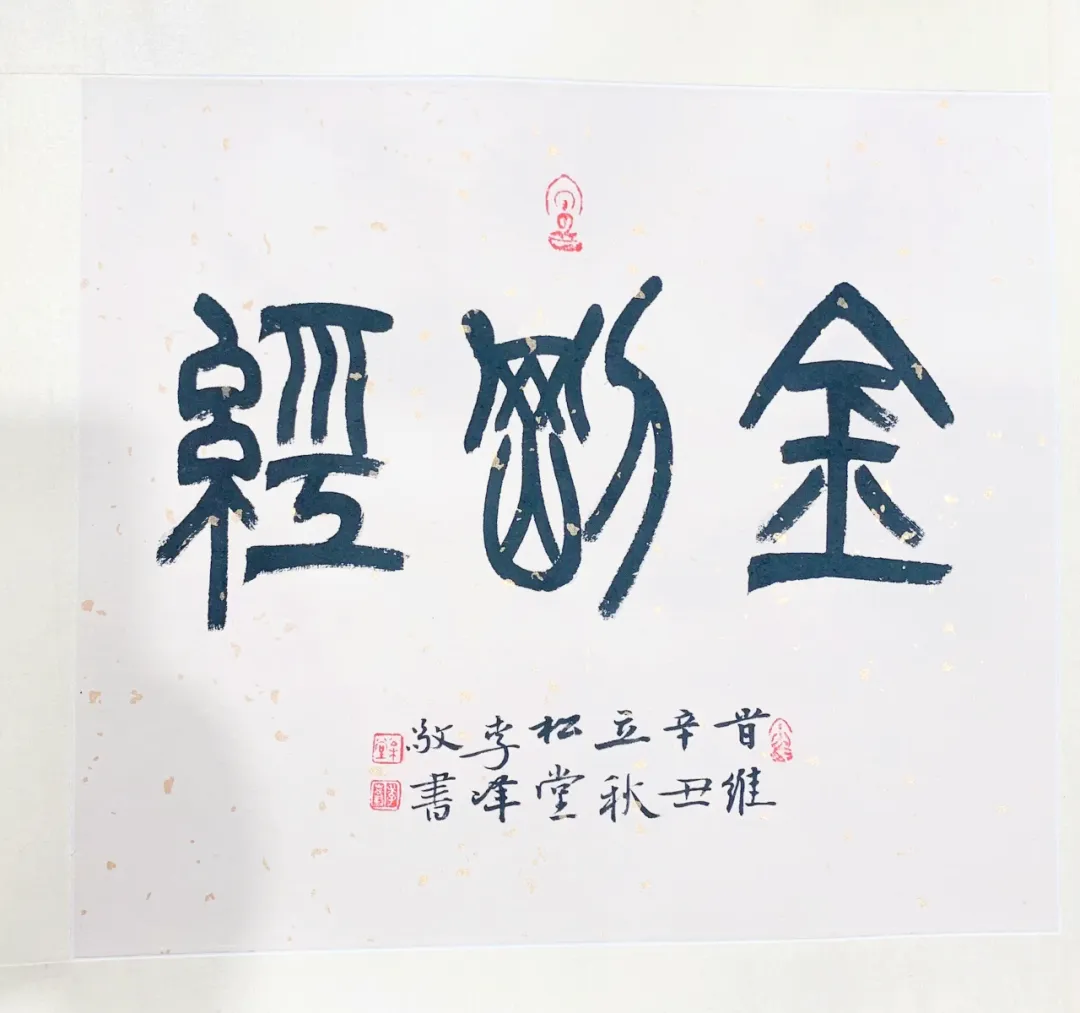 金剛經
旹維
辛丑
立秋
松堂
李峰
敬書